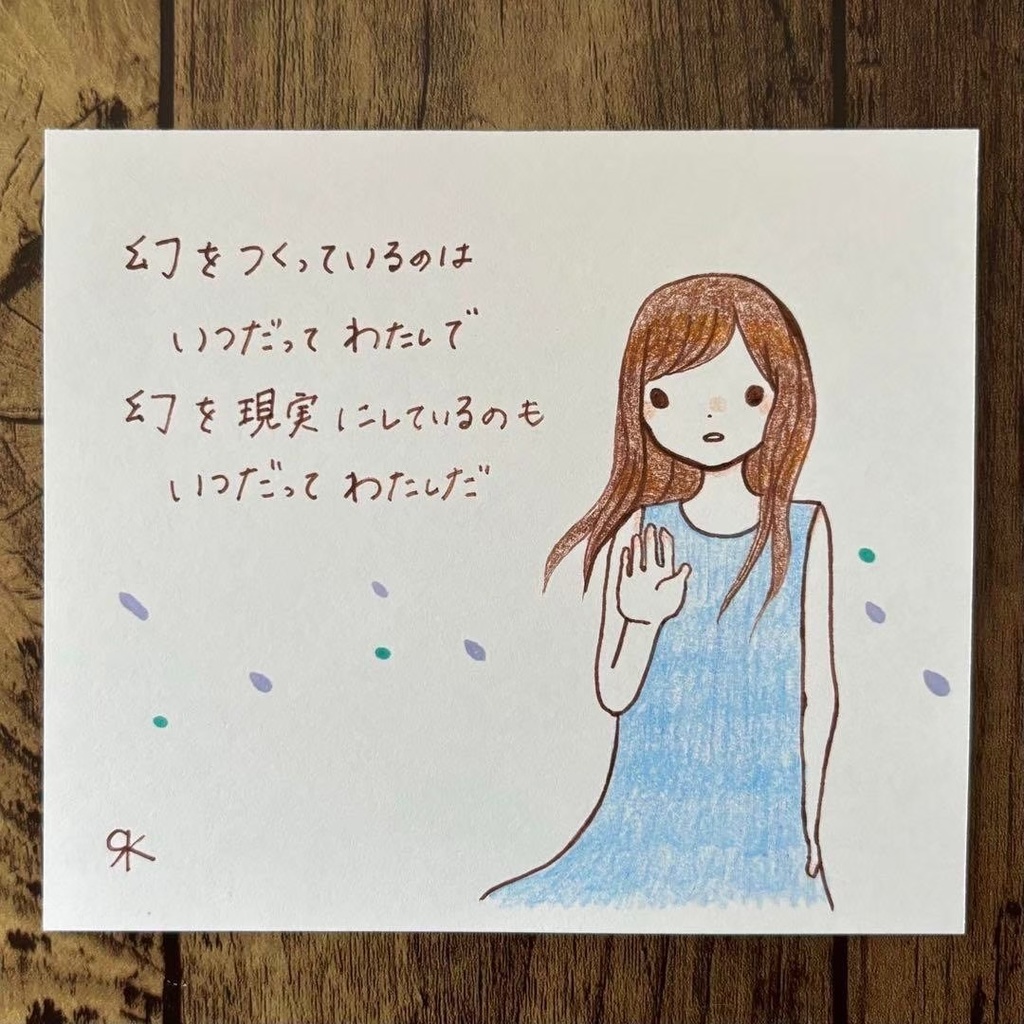 幻をつくっているのは
いつだって わたしで
幻を現実にしているのも
いつだって わたしだ